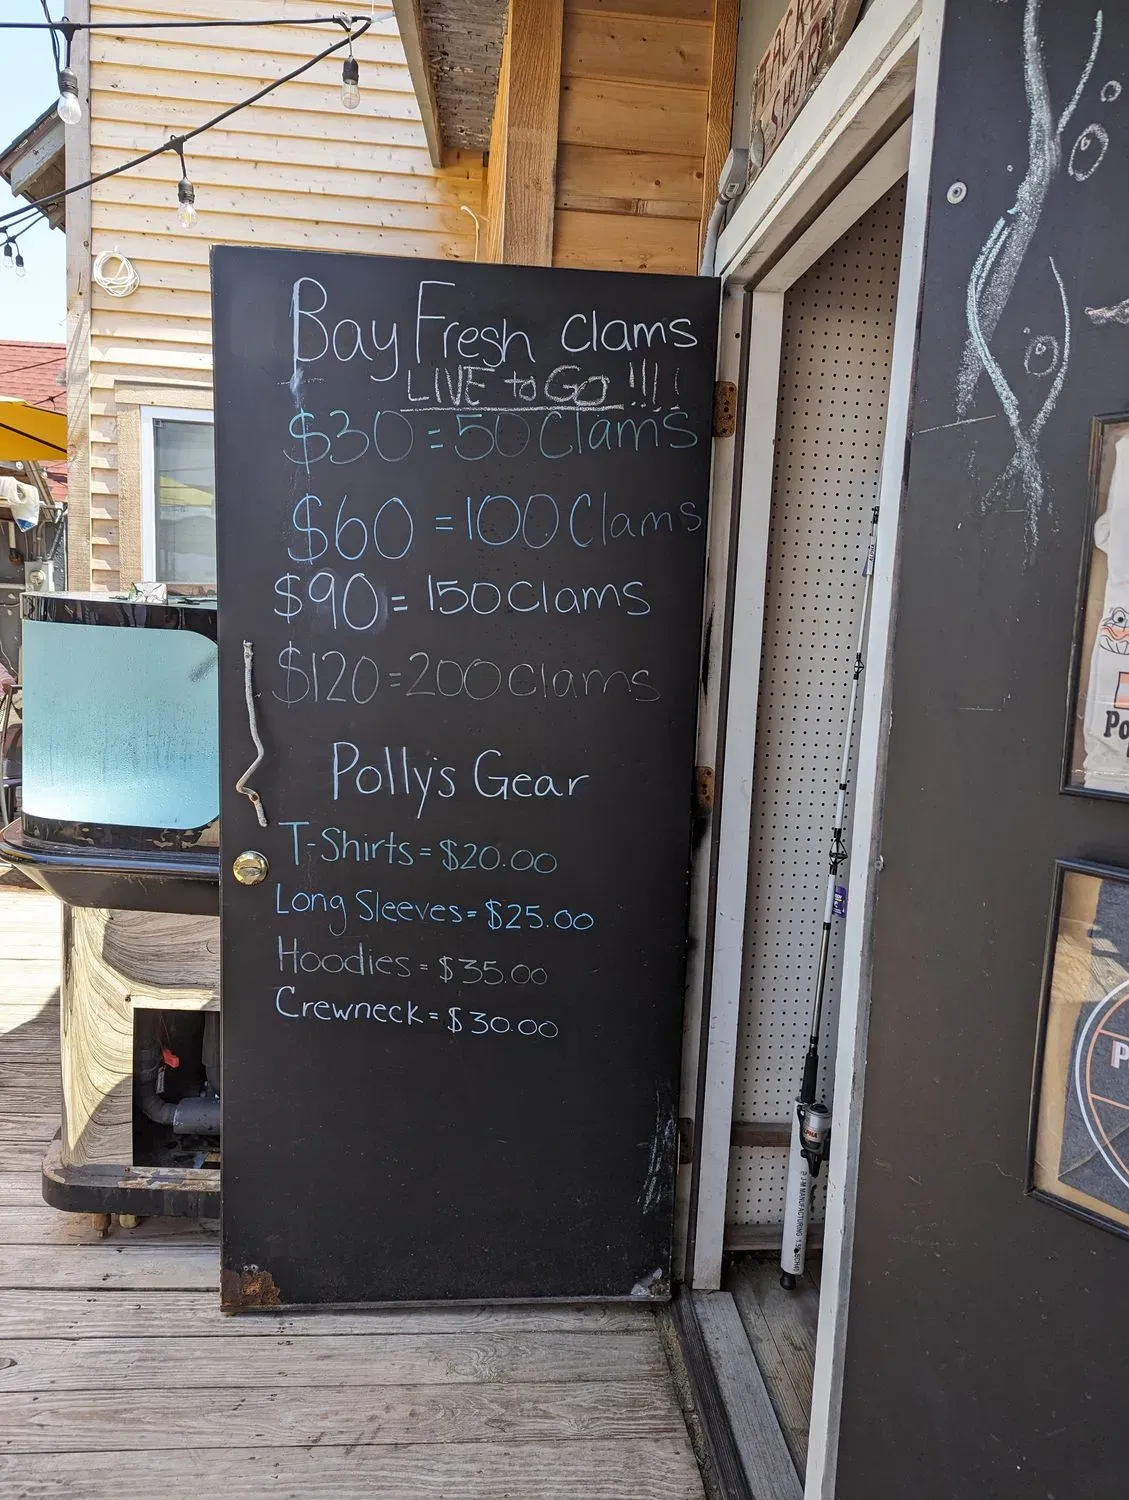 TACKLE
SHOP
Bay Fresh Clams
LIVE to GO !!!!
$30 = 50 Clams
$60 = 100 Clams
$90 = 150 Clams
$120 = 200 Clams
Polly's Gear
T-Shirts = $20.00
Long Sleeves = $25.00
Hoodies = $35.00
Crewneck = $30.00
Po
P
ALPHA